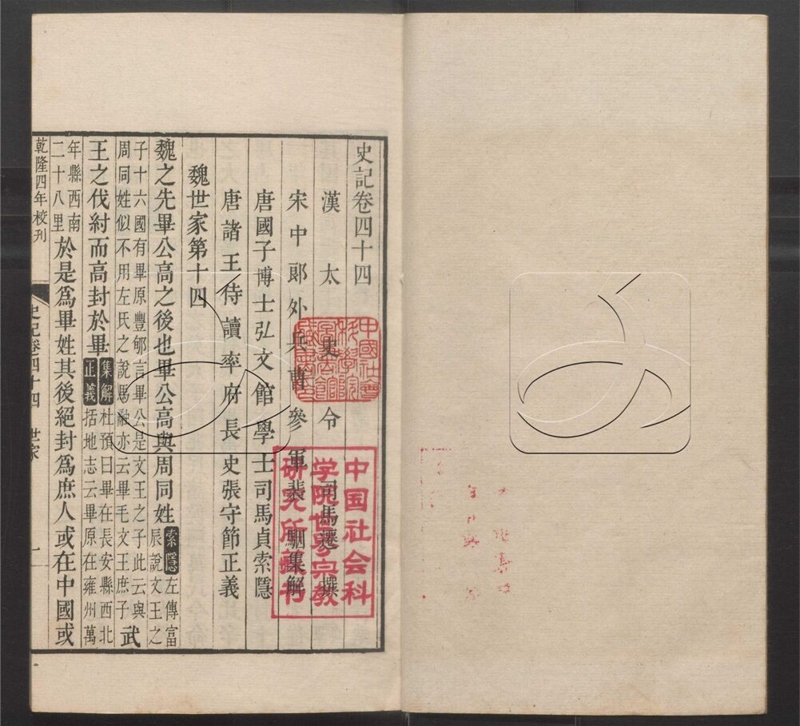 史記卷四十四
漢太史令司馬遷撰
宋中郎外兵曹參軍裴駰集解
唐國子博士弘文館學士司馬貞索隱
唐諸王侍讀率府長史張守節正義
魏世家第十四
魏之先畢公高之後也畢公高與周同姓索隱左傳富
辰說文王之
子十六國有畢原豐郇言畢公是文王之子此云與
周同姓似不用左氏之說馬融亦云畢毛文王庶子武
王之伐紂而高封於畢集解杜預曰畢在長安縣西北
正義括地志云畢原在雍州萬
年縣西南
二十八里於是爲畢姓其後絕封爲庶人或在中國或
乾隆四年校刊
史記卷四十四 世家
一
中国社会科
学院世界宗教
研究所藏书
中國社會
科學院